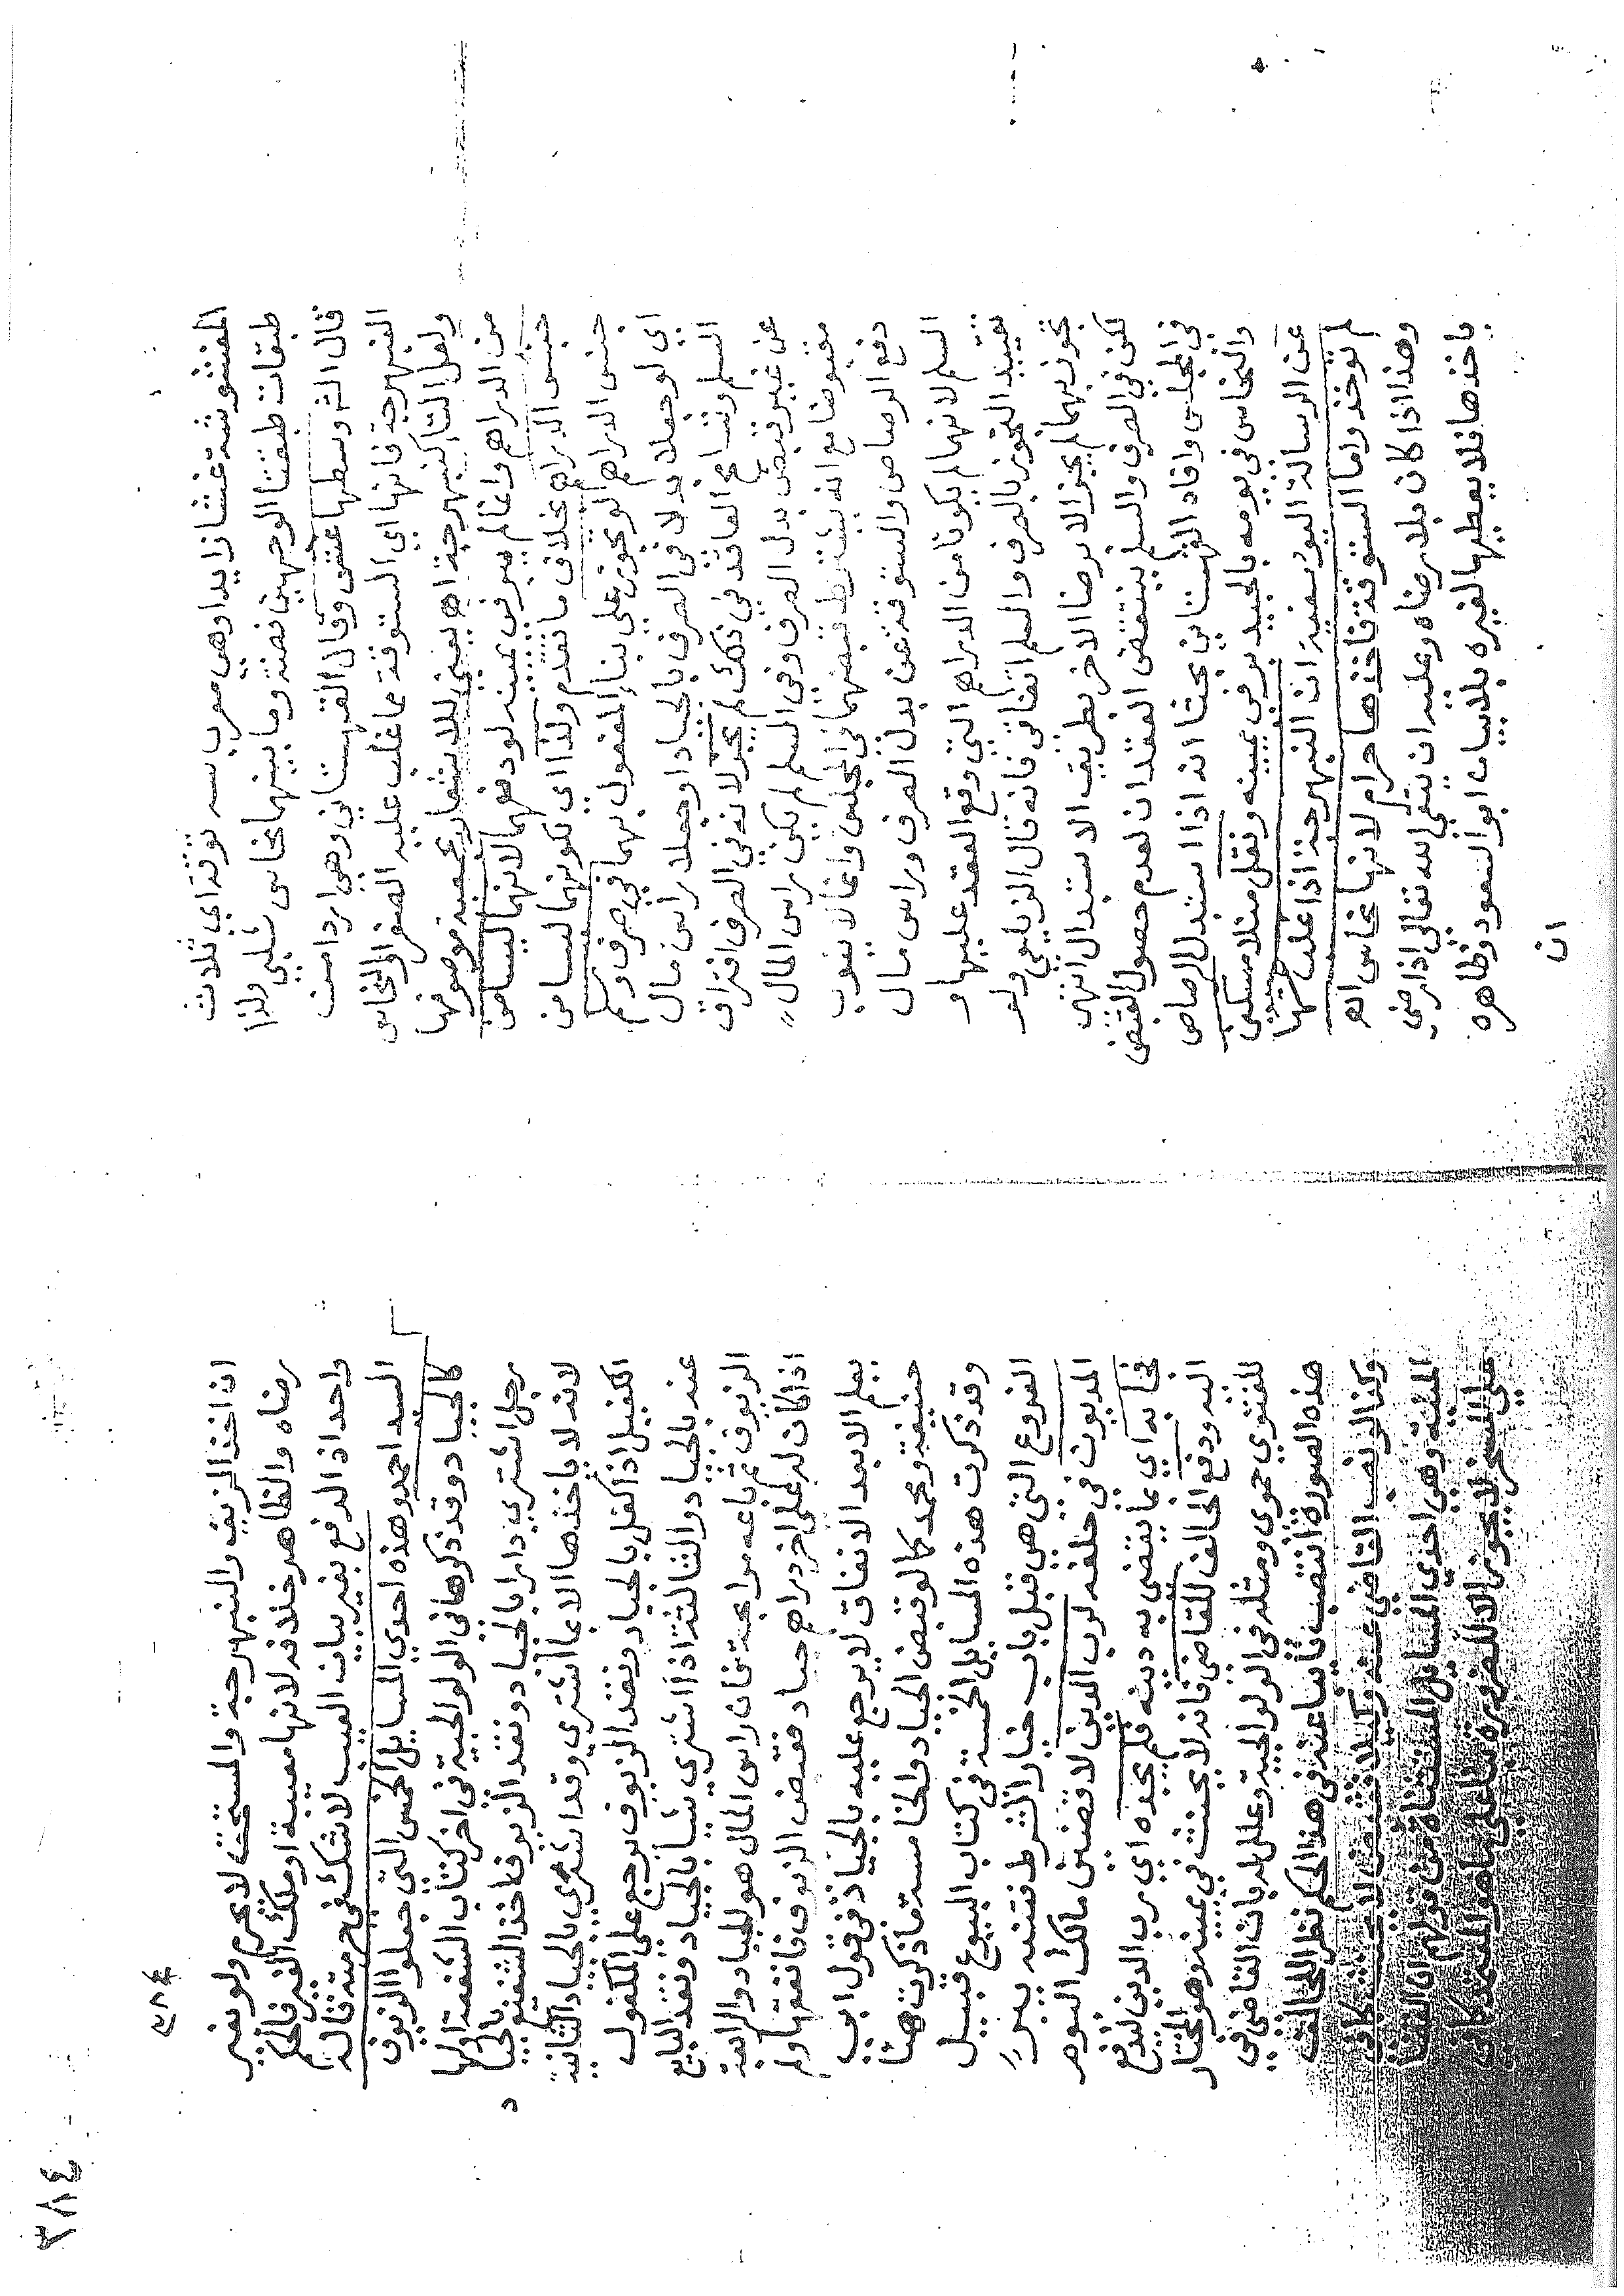 المغشوشة غشا زايدا وهي معرب سه توقه اي ثلاث
طبقات طبقتا الوجهين فضة وما بينهما نحاس شلبي ولذا
قال الشر وسطها غش وقال القهستاني وهي اردا من
النبهرجة فانها اي الستوقة مما غلب عليه الصفر والنحاس
ولعل التا كنبهرجة اهـ يعني بلا بتقدير موصوفها
من الدراهم وانما لم يبر في يمينه لو دفعهما لانهما ليسا من
جنس الدراهم بخلاف ما تقدم ولذا اي لكونهما ليسا من
جنس الدراهم لو تجوز علي بناء المفعول بهما في صرف وسلم
اي لو جعلا بدلا في الصرف بالجياد او جعلا راس مال
السلم وتسامح العاقد في ذلك لم يجز لانه في الصرف افتراق
عن غير قبض بدل الصرف وفي السلم لم يكن راس المال
مقبوضا مع انه يشترط قبضهما في المجلس وانما لا ينوب
دفع الرصاص والستوقة عن بدل الصرف وراس مال
السلم لانهما لم يكونا من الدراهم التي وقع العقد عليها و
تقييد التجوز بالصرف والسلم اتفاقي فانه قال الزيلعي ولو
تجوز بهما لم يجز الا برضا الاخر بطريق الاستبدال انتهي
لكن في الصرف والسلم ينتقض العقدان لعدم حصول القبض
في المجلس وافاد القهستاني بحثا انه اذا استبدل الرصاص
والنحاس في يومه بالجيد بر في يمينه ونقل منلا مسكين
عن الرسالة اليوسفية ان النبهرجة اذا غلب غشها
لم توخذ واما الستوقة فاخذها حرام لانها نحاس اهـ
وهذا اذا كان بلا رضاه وعليه ان يتقي الله تعالي اذا رضي
باخذها فلا يعطيها لغيره بلا بيان ابو السعود وظاهره
ان
٣٨٤
ان اخذ الزيف والنبهرجة والمستحقة لا يحرم ولو بغير
رضاه والظاهر خلافه لانها معيبة او ملك الغير فالحكم
واحد اذ الدفع بغير بيان العيب لا شك في حرمته قاله
السيد احمد وهذه احدي المسايل الخمس التي جعلوا الزيوف
كالجياد وقد ذكرها في الولوالجية في اخر كتاب الشفعة اولها
رجل اشتري دارا بالجياد ونقد الزيوف اخذ الشفيع بالجياد
لانه لا ياخذها الا بما اشتري وقد اشتري بالجياد الثانية
الكفيل اذا كفل بالجياد ونقد الزيوف يرجع علي المكفول
عنه بالجياد والثالثة اذا اشتري شيا بالجياد ونقد البايع
الزيوف ثم باعه مرابحة فان راس المال هو الجياد والرابعة
اذا كان له علي اخر دراهم جياد فقبض الزيوف فانفقها ولم
يعلم الا بعد الانفاق لا يرجع عليه بالجياد في قول ابي
حنيفة ومحمد كما لو قبض الجياد والخامسة ما ذكرت هنا
وقد ذكرت هذه المسايل الخمسة في كتاب البيوع قبيل
الفروع التي هي قبل باب خيار الشرط فتنبه يبر
المديون في حلفه لرب الدين لا قضين مالك اليوم
فجا به اي بما يقضي به دينه فلم يجده اي رب الدين ليدفع
اليه ودفع الحالف للقاضي فانه لا يحنث في يمينه وهو المختار
للفتوي حموي ومثله في الولوالجية وعلل له بان القاضي في
هذه الصورة انتصب نايبا عنه في هذا الحكم نظرا للحالف
وكذا لو نصب القاضي عنه وكيلا فقبض لا يحنث كما في
المنية وهي احدي المسايل المستثناة من قولهم ان القضا
علي المسخر لا يجوز الا لضرورة بنا علي ما هو المعتمد كما في